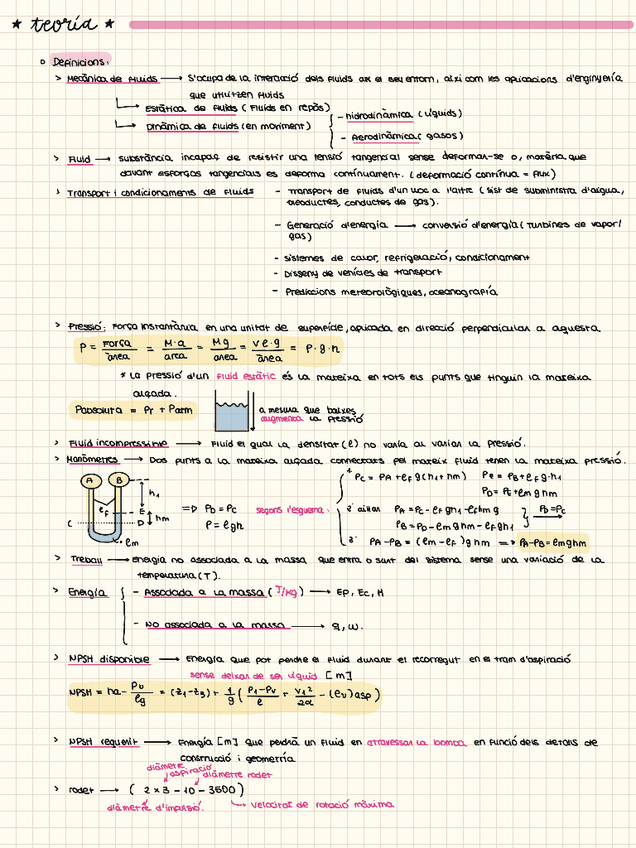 ★ teoría ★
o Definicions:
> Mecànica de Fluids → s'ocupa de la interacció dels fluids amb el seu entorn, així com les aplicacions d'enginyeria
que utilitzen fluids
↳ Estàtica de fluids (Fluids en repòs)
↳ Dinàmica de fluids (en moviment)
- Hidrodinàmica (Líquids)
- Aerodinàmica (gasos)
> Fluid → substància incapaç de resistir una tensió tangencial sense deformar-se o, matèria que
davant esforços tangencials es deforma contínuament. (deformació contínua = flux)
> Transport i condicionaments de fluids - Transport de fluids d'un lloc a l'altre (sist de subministra d'aigua,
oleoductes, conductes de gas).
- Generació d'energia → conversió d'energia (Turbines de vapor/
gas)
- sistemes de calor, refrigeració, condicionament
- Disseny de vehicles de transport
- Prediccions meteorològiques, oceanografia
> Pressió: Força instantània en una unitat de superfície, aplicada en direcció perpendicular a aquesta
P = Força/àrea = M·a/area = Mg/àrea = v·ρ·g/àrea = ρ·g·h
* La pressió d'un fluid estàtic és la mateixa en tots els punts que tinguin la mateixa
alçada.
Pabsoluta = Pr + Patm
a mesura que baixes
augmenta la pressió
> Fluid incompressible → Fluid el qual la densitat (ρ) no varia al variar la pressió.
> Manòmetres → Dos punts a la mateixa alçada connectats pel mateix fluid tenen la mateixa pressió.
A B h1 ρf E hm C D ρm
=> PD = PC
P = ρgh
segons l'esquema:
1 PC = PA + ρf g (h1 + hm) PE = PB + ρf g·h1
PD = PE + ρm g hm
2 aïllar PA = PC - ρf gh1 - ρf hm g
PB = PD - ρm g hm - ρf gh1
PD = PC →
3 PA - PB = (ρm - ρf) g hm => PA - PB = ρm g hm
> Treball → energia no associada a la massa que entra o surt del sistema sense una variació de la
temperatura (T).
> Energía - Associada a la massa (J/kg) → EP, Ec, H
- No associada a la massa → Q, W.
> NPSH disponible → Energía que pot perdre el fluid durant el recorregut en el tram d'aspiració
sense deixar de ser líquid [m]
NPSH = ha - Pv/ρg = (z1 - z3) + 1/g (P1 - Pv/ρ + v1²/2α - (ev)asp)
> NPSH requerit → Energía [m] que perdrà un fluid en atravessar la bomba en funció dels detalls de
construcció i geometría
diàmetre aspiració
diàmetre rodet
> rodet → (2 x 3 - 10 - 3500)
diàmetre d'impulsió.
↳ velocitat de rotació màxima